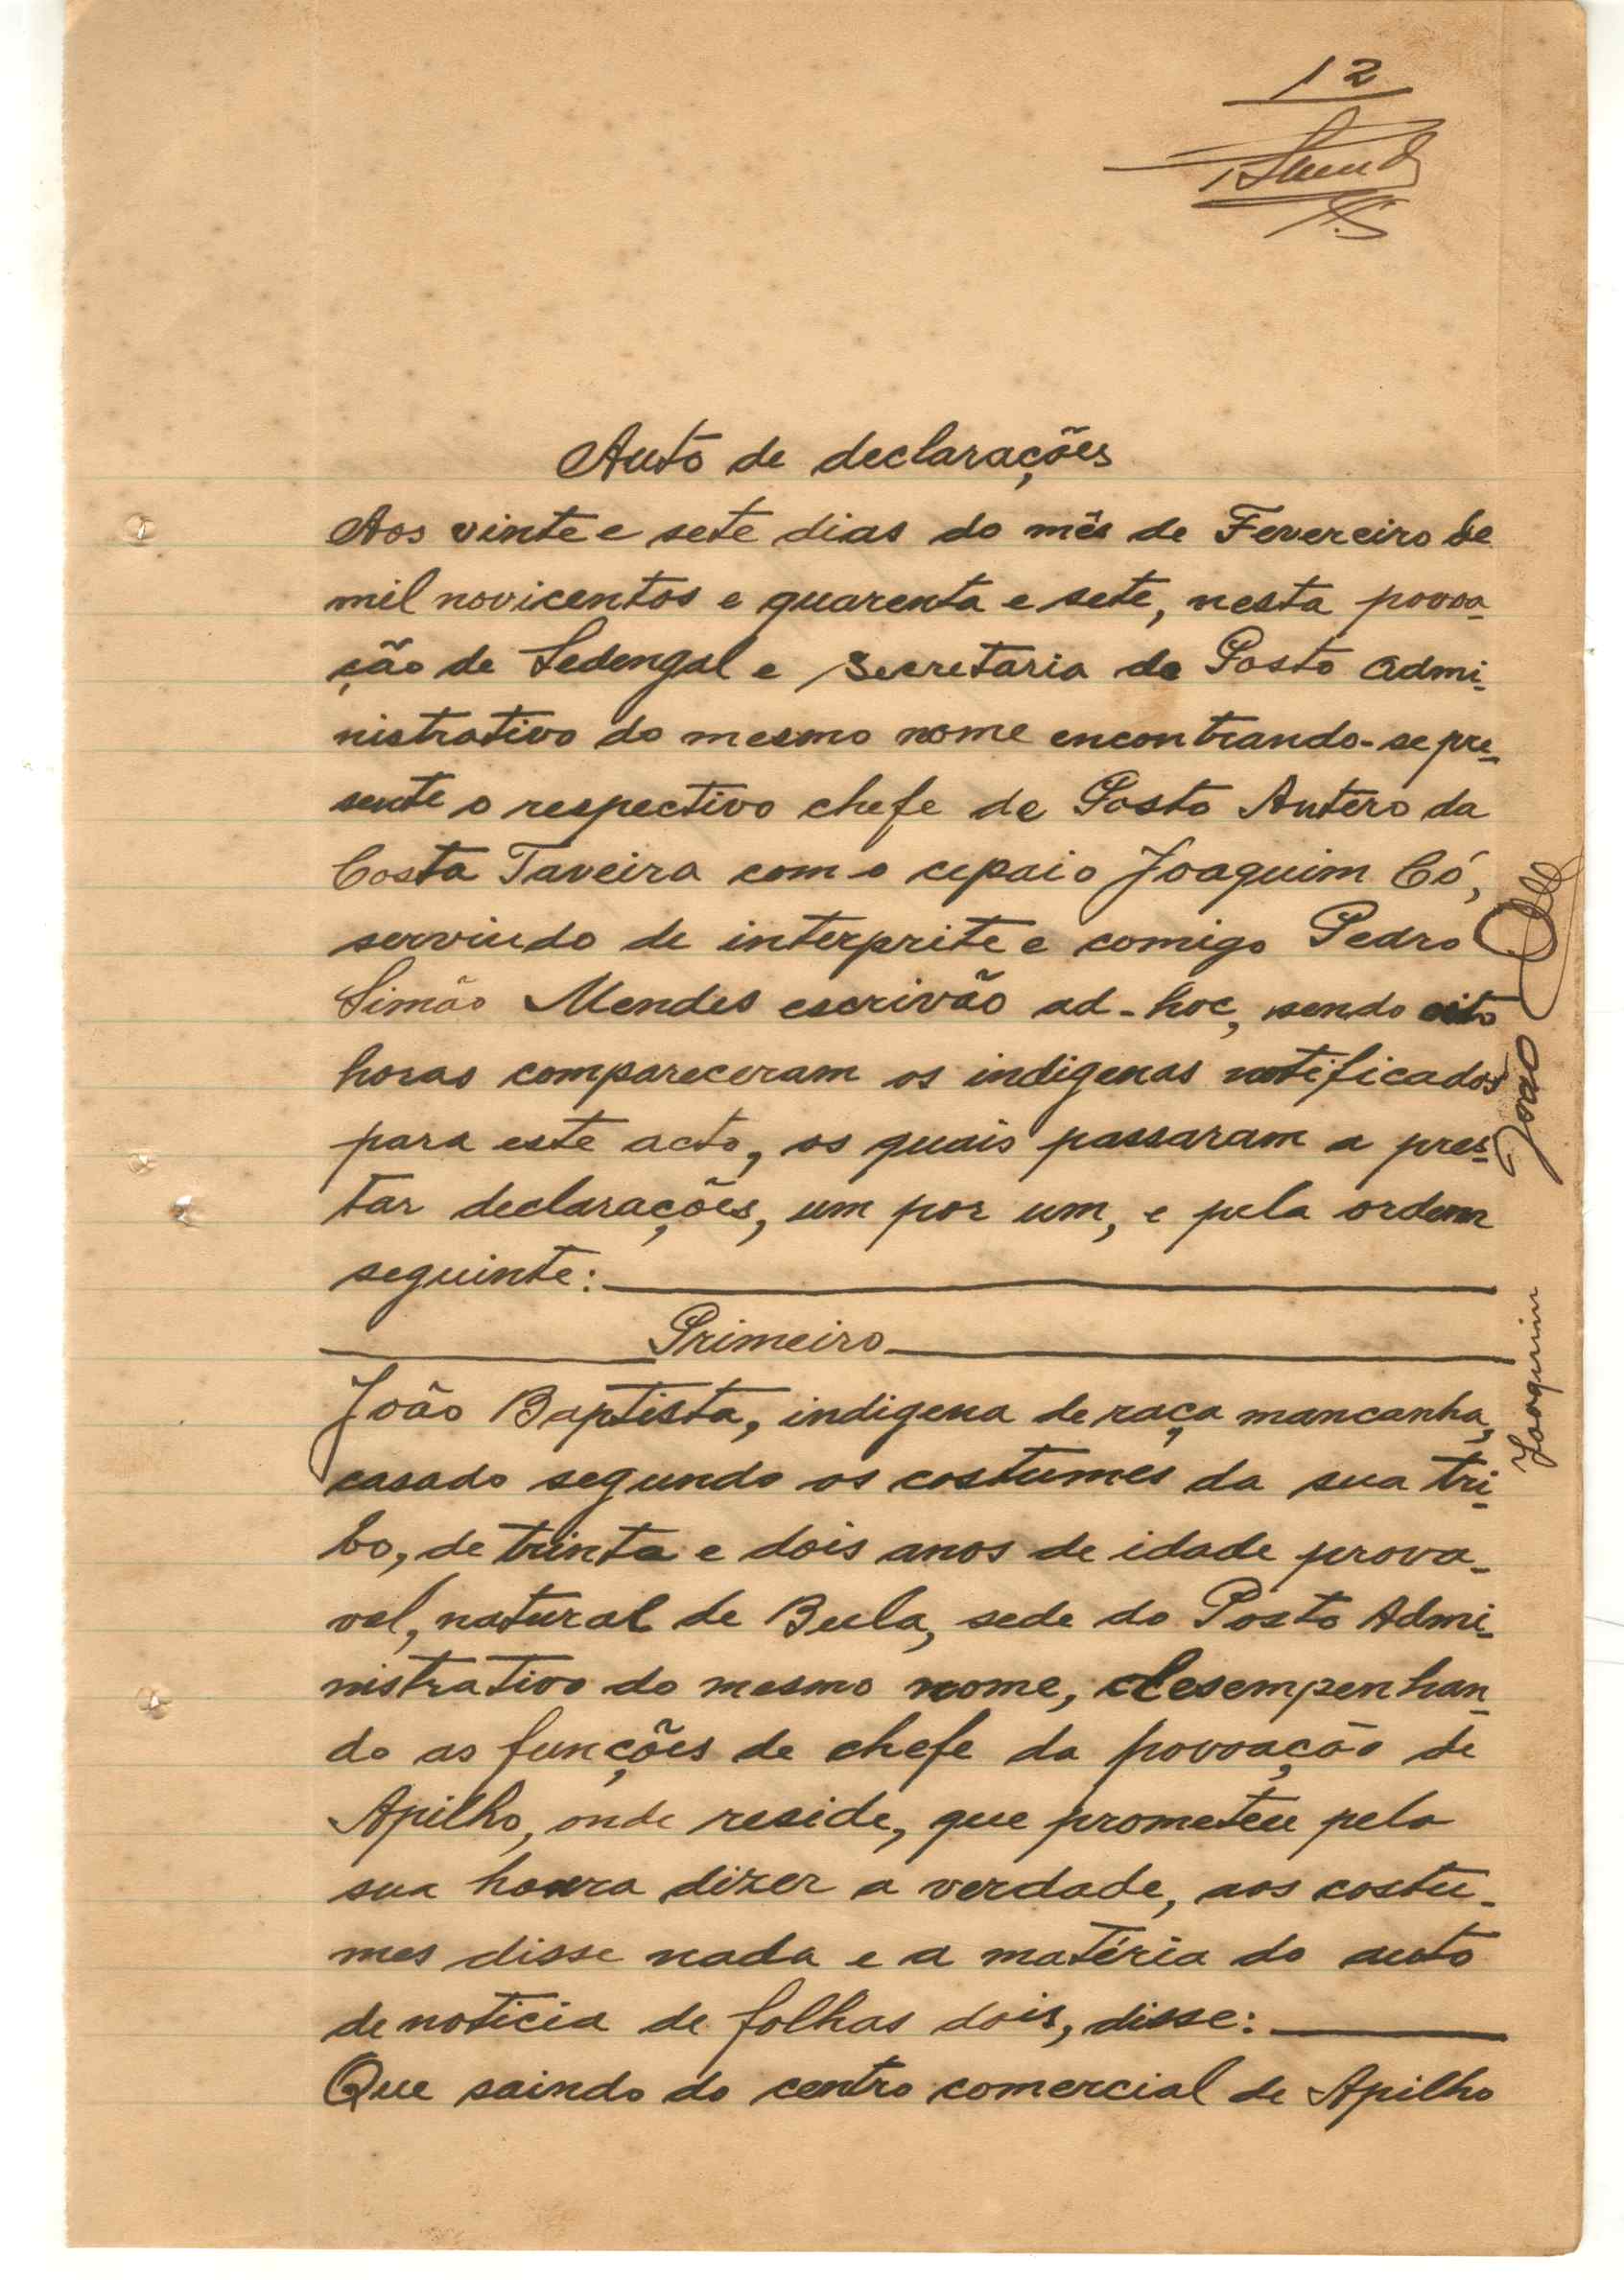 12
Auto de declarações
Aos vinte e sete dias do mês de Fevereiro de
mil novicentos e quarenta e sete, nesta povoa-
ção de Sedengal e Secretaria do Posto Admi-
nistrativo do mesmo nome encontrando-se pre-
sente o respectivo chefe de Posto Antero da
Costa Taveira com o cipaio Joaquim Có,
servindo de interprite e comigo Pedro
Simão Mendes escrivão ad-hoc, sendo oito
horas compareceram os indigenas notificados
para este acto, os quais passaram a pres-
tar declarações, um por um, e pela ordem
seguinte:
Primeiro
João Baptista, indigena de raça mancanha,
casado segundo os costumes da sua tri-
bo, de trinta e dois anos de idade prova-
vel, natural de Bula, sede do Posto Admi-
nistrativo do mesmo nome, desempenhan-
do as funções de chefe da povoação de
Apilho, onde reside, que prometeu pela
sua honra dizer a verdade, aos costu-
mes disse nada e a matéria do auto
de noticia de folhas dois, disse:
Que saindo do centro comercial de Apilho
João
Joaquim